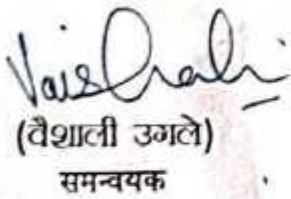 Vaishali
(वैशाली उगले)
समन्वयक